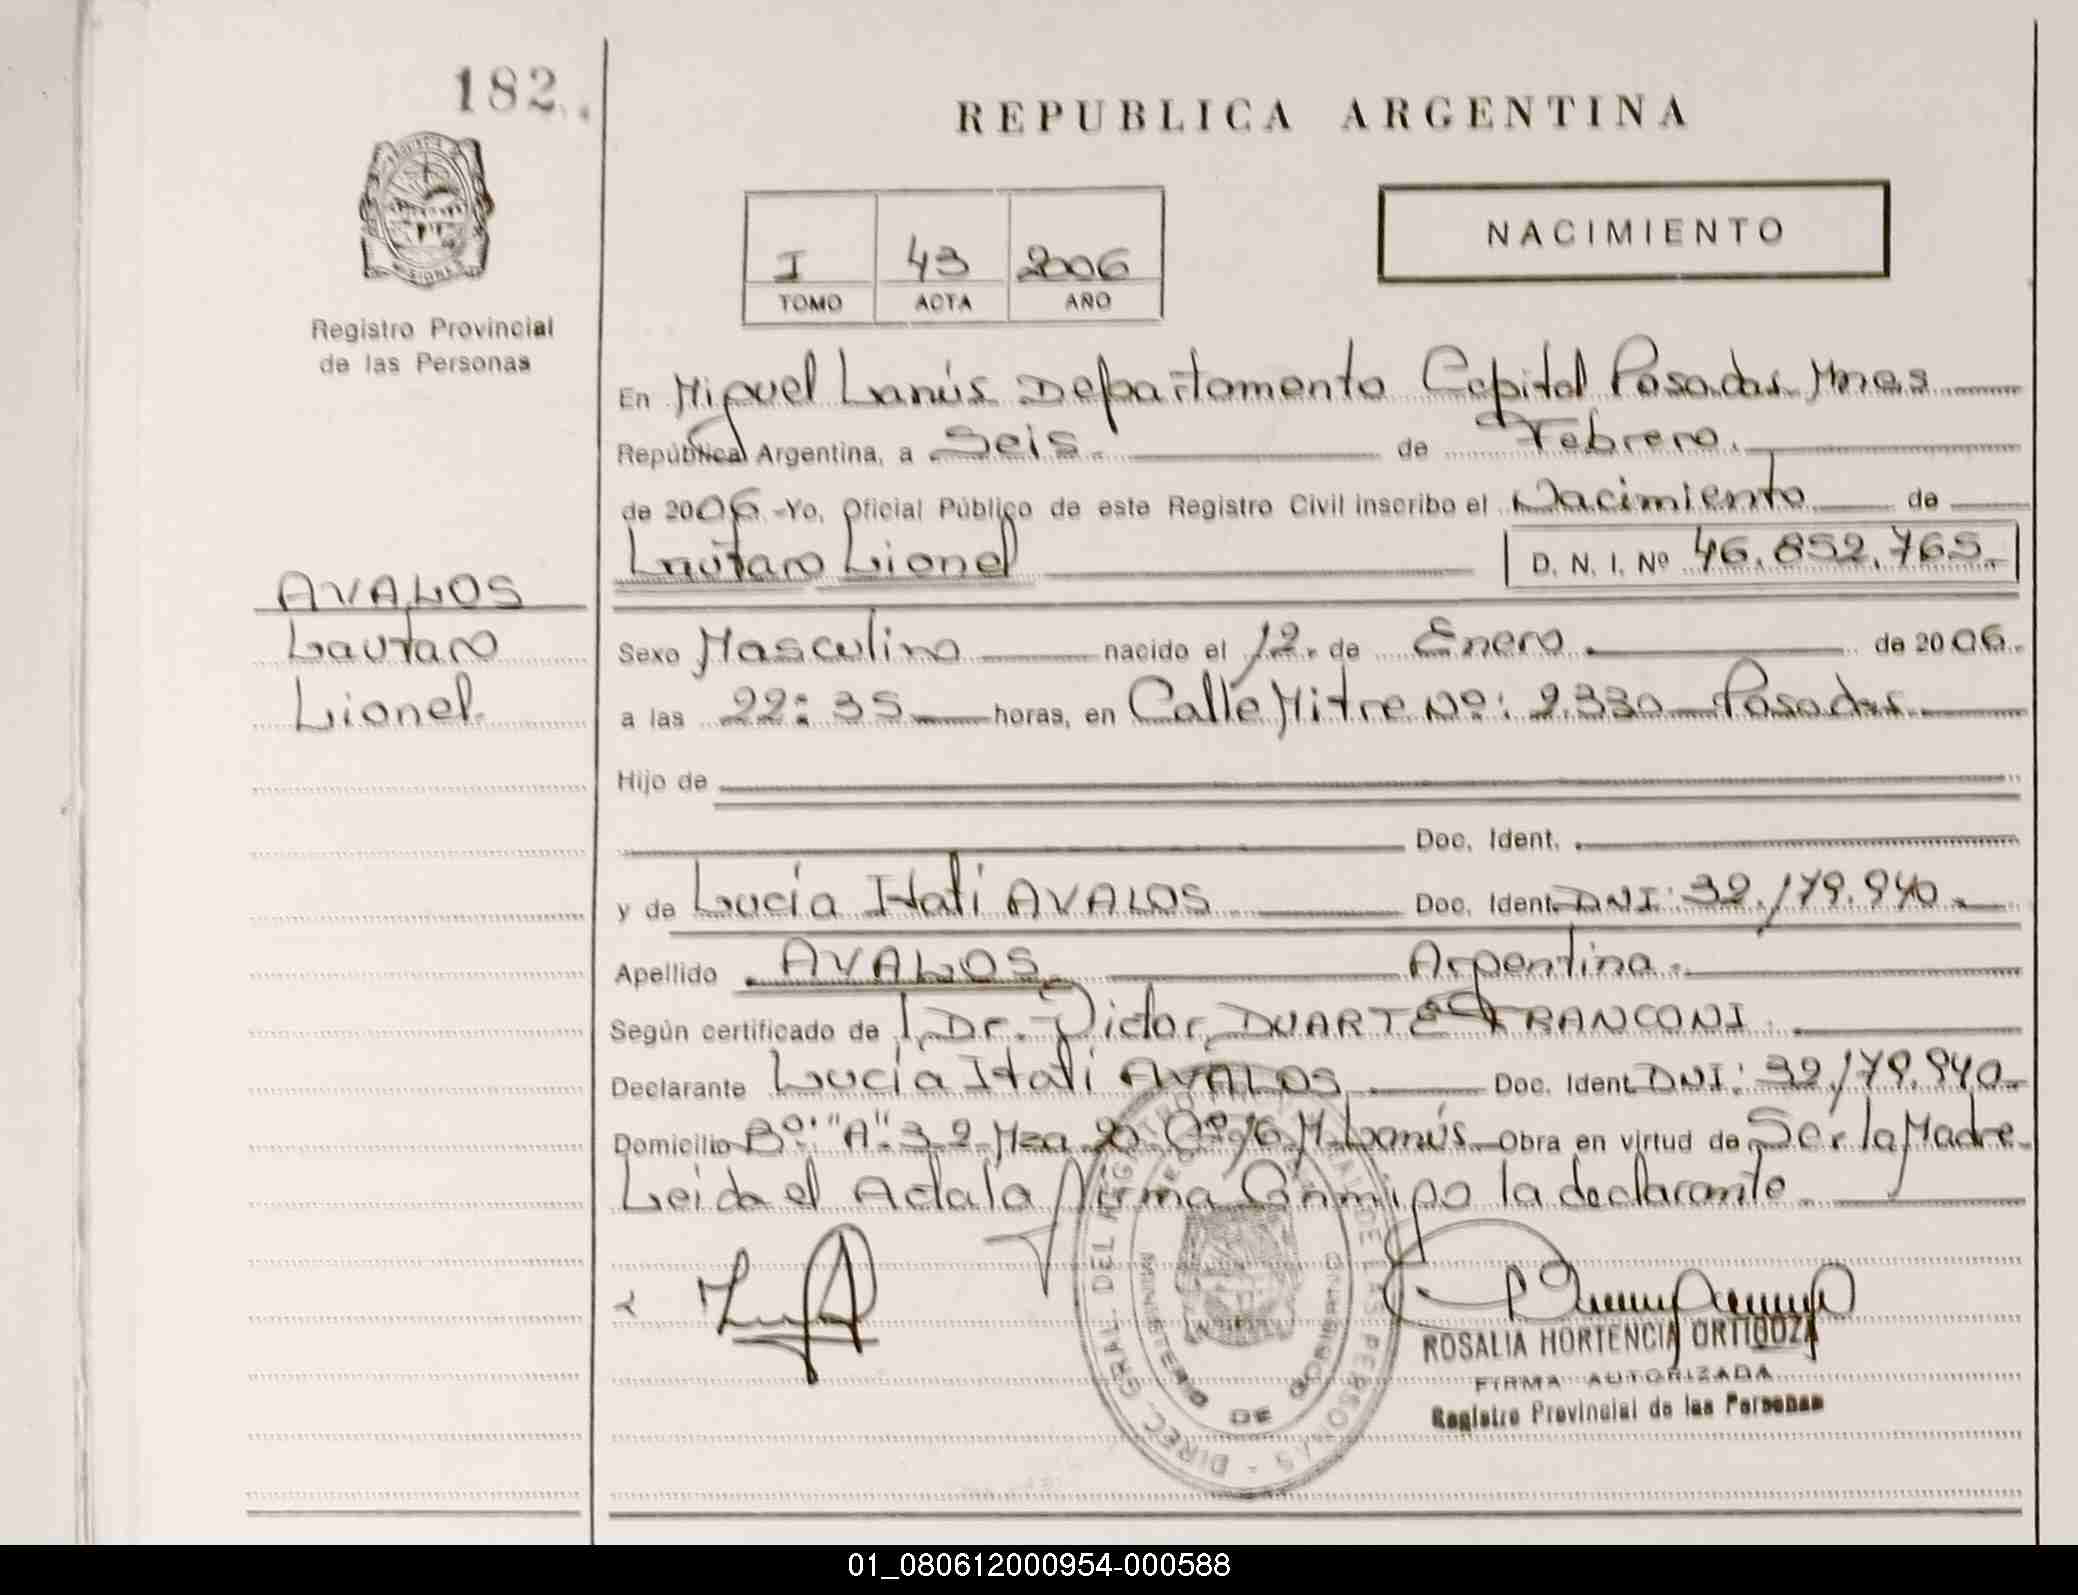 182
REPUBLICA ARGENTINA
NACIMIENTO
I 43 2006
TOMO ACTA AÑO
Registro Provincial
de las Personas
En Miguel Lanús Departamento Capital Posadas Mnes
República Argentina, a Seis de Febrero.
de 2006 -Yo, Oficial Público de este Registro Civil inscribo el Nacimiento de
Lautaro Lionel D. N. I. Nº 46.852.765.
AVALOS
Lautaro
Lionel.
Sexo Masculino nacido el 12. de Enero. de 2006.
a las 22:35 horas, en Calle Mitre Nº: 2.330 Posadas.
Hijo de
Doc. Ident.
y de Lucía Itatí AVALOS Doc. Ident. DNI: 32.179.940.
Apellido AVALOS. Argentina.
Según certificado de Dr. Victor DUARTE FRANCONI.
Declarante Lucía Itatí AVALOS Doc. Ident. DNI: 32.179.940.
Domicilio Bº: "A" 3-2 Mza 20 16 M. Lanús Obra en virtud de Ser la Madre
Leida el Acta la firma Conmigo la declarante.
DIREC. GRAL. DEL REGISTRO PROVINCIAL DE LAS PERSONAS
MINISTERIO DE GOBIERNO
ROSALIA HORTENCIA ORTIGOZA
FIRMA AUTORIZADA
Registro Provincial de las Personas
01_080612000954-000588